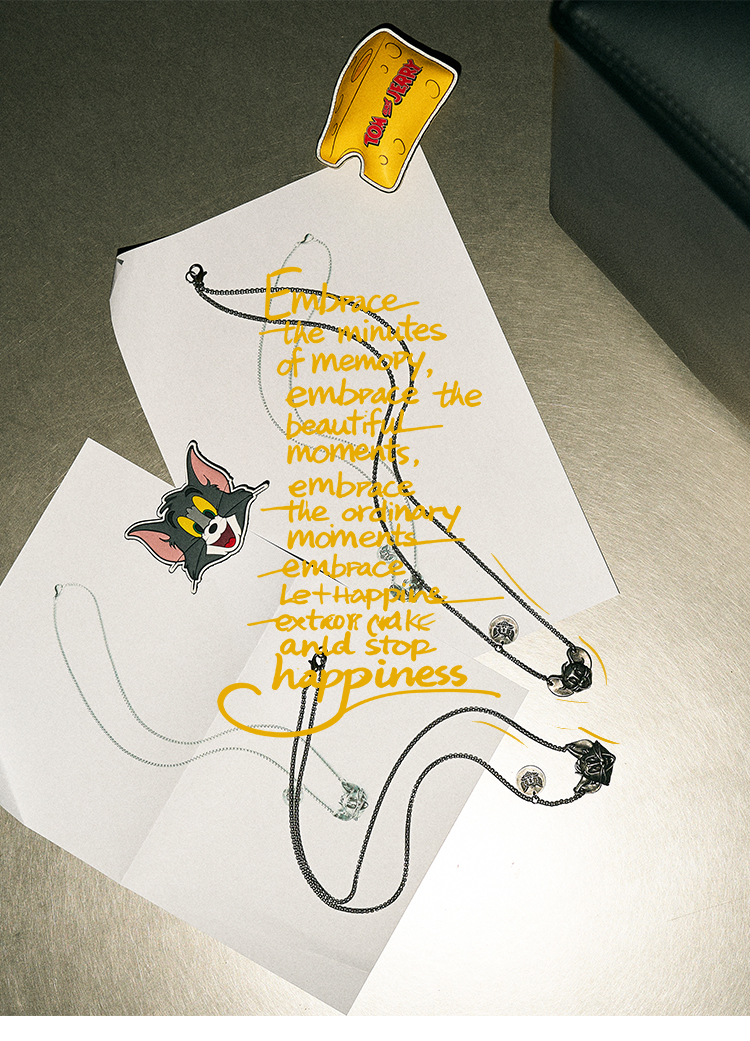 TOM and JERRY
Embrace
the minutes
of memory,
embrace the
beautiful
moments,
embrace
the ordinary
moments
embrace
Let Happine
make
and stop
happiness